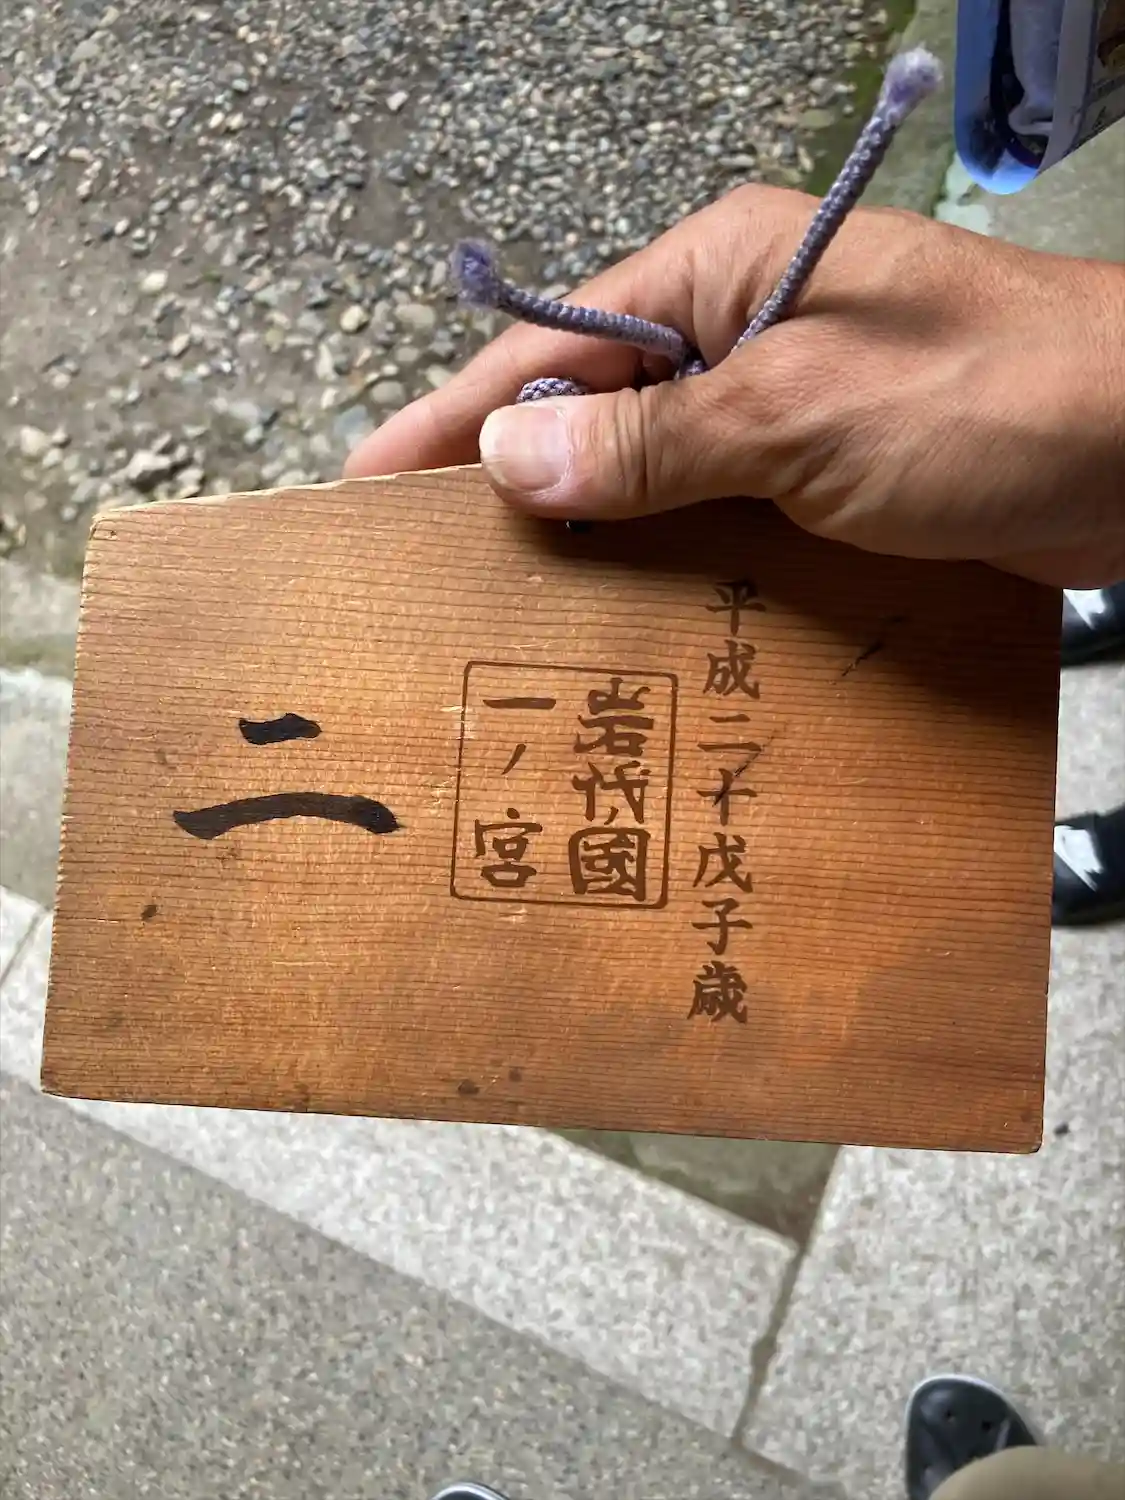 平成二十戊子歳
岩代ノ國
一ノ宮
二